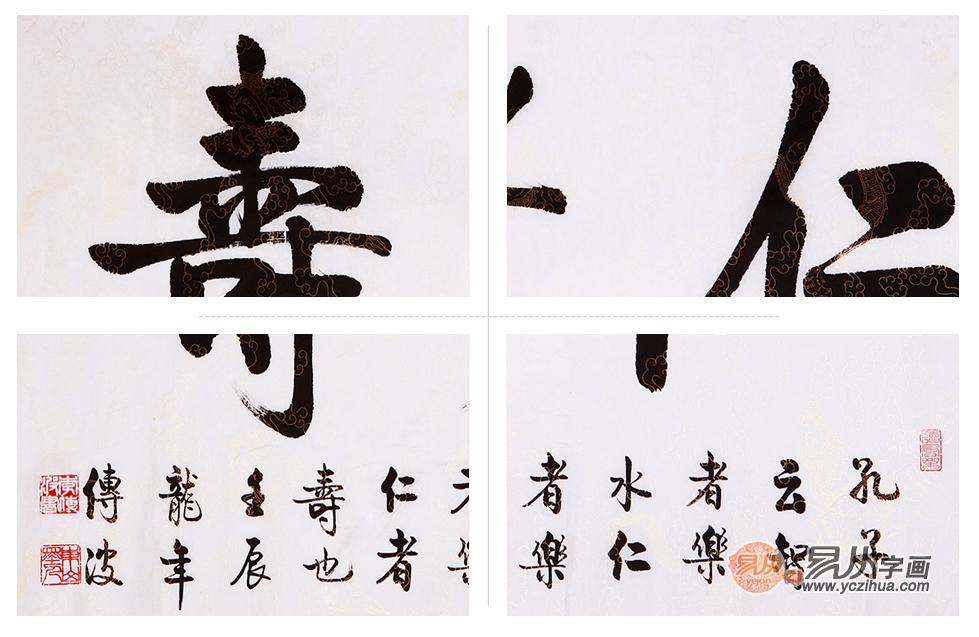 仁
壽
孔子
云智
者樂
水仁
者樂
仁者
壽也
壬辰
龍年
傳波
易从
yejon
易从字画
www.yczihua.com